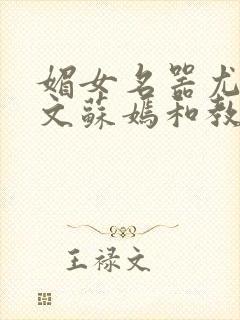 媚女名器尤
文蘇媽和教
王禄文